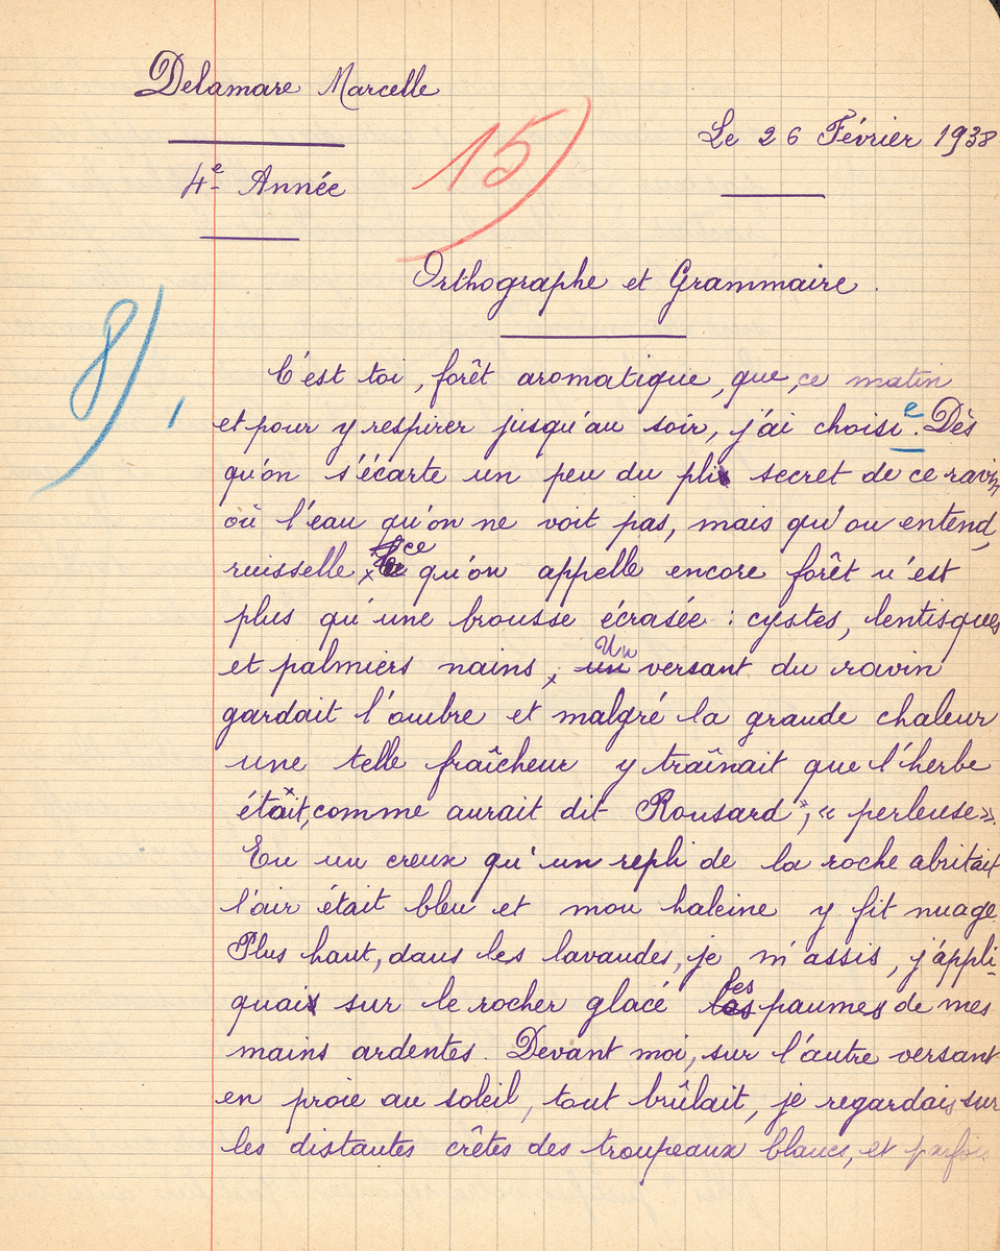 Delamare Marcelle
15)
Le 26 Février 1938
4e Année
Orthographe et Grammaire.
8)
C'est toi, forêt aromatique, que, ce matin
et pour y respirer jusqu'au soir, j'ai choisie. Dès
qu'on s'écarte un peu du pli secret de ce ravin,
où l'eau qu'on ne voit pas, mais qu'on entend,
ruisselle, ce qu'on appelle encore forêt n'est
plus qu'une brousse écrasée : cystes, lentisques
et palmiers nains, un Un versant du ravin
gardait l'ombre et malgré la grande chaleur
une telle fraîcheur y traînait que l'herbe
était, comme aurait dit Ronsard, « perleuse ».
En un creux qu'un repli de la roche abritait
l'air était bleu et mon haleine y fit nuage.
Plus haut, dans les lavandes, je m'assis, j'appli-
quai sur le rocher glacé les paumes de mes
mains ardentes. Devant moi, sur l'autre versant
en proie au soleil, tout brûlait, je regardais sur
les distantes crêtes des troupeaux blancs, et parfois